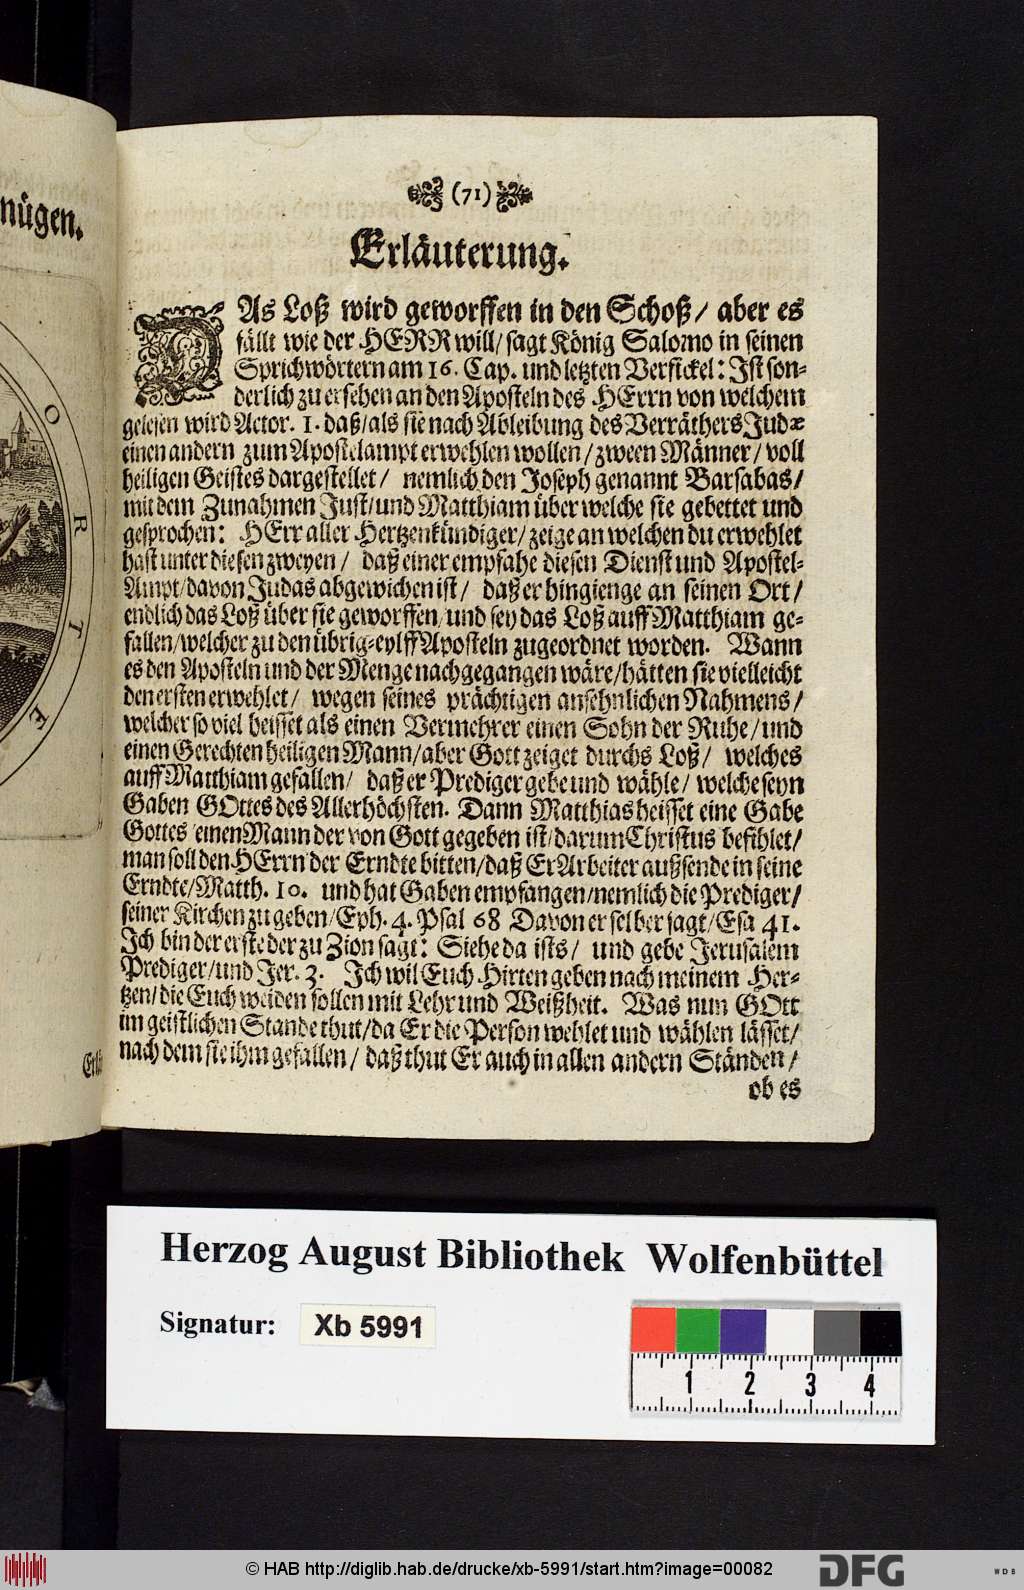 nügen.
O
R
T
E
(71)
Erläuterung.
DAs Loß wird geworffen in den Schoß/ aber es
fällt wie der HERR will/ sagt König Salomo in seinen
Sprichwörtern am 16. Cap. und letzten Versickel: Ist son-
derlich zu ersehen an den Aposteln des HErrn von welchem
gelesen wird Actor. 1. daß/ als sie nach Ableibung des Verräthers Judæ
einen andern zum Apostelampt erwehlen wollen/ zween Männer/ voll
heiligen Geistes dargestellet/ nemlich den Joseph genannt Barsabas/
mit dem Zunahmen Just/ und Matthiam über welche sie gebettet und
gesprochen: HErr aller Hertzenkündiger/ zeige an welchen du erwehlet
hast unter diesen zweyen/ daß einer empfahe diesen Dienst und Apostel-
Ampt/ davon Judas abgewichen ist/ daß er hingienge an seinen Ort/
endlich das Loß über sie geworffen/ und sey das Loß auff Matthiam ge-
fallen/ welcher zu den übrig-eylff Aposteln zugeordnet worden. Wann
es den Aposteln und der Menge nachgegangen wäre/ hätten sie vielleicht
den ersten erwehlet/ wegen seines prächtigen ansehnlichen Nahmens/
welcher so viel heisset als einen Vermehrer einen Sohn der Ruhe/ und
einen Gerechten heiligen Mann/ aber Gott zeiget durchs Loß/ welches
auff Matthiam gefallen/ daß er Prediger gebe und wähle/ welche seyn
Gaben GOttes des Allerhöchsten. Dann Matthias heisset eine Gabe
Gottes einen Mann der von Gott gegeben ist/ darum Christus befihlet/
man soll den HErrn der Erndte bitten/ daß Er Arbeiter außsende in seine
Erndte/ Matth. 10. und hat Gaben empfangen/ nemlich die Prediger/
seiner Kirchen zu geben/ Eph. 4. Psal 68 Davon er selber sagt/ Esa 41.
Ich bin der erste der zu Zion sagt: Siehe da ists/ und gebe Jerusalem
Prediger/ und Jer. 3. Ich wil Euch Hirten geben nach meinem Her-
tzen/ die Euch weiden sollen mit Lehr und Weißheit. Was nun GOtt
im geistlichen Stande thut/ da Er die Person wehlet und wählen lässet/
nach dem sie ihm gefallen/ daß thut Er auch in allen andern Ständen/
ob es
Erlä
Herzog August Bibliothek Wolfenbüttel
Signatur: Xb 5991
1 2 3 4
© HAB http://diglib.hab.de/drucke/xb-5991/start.htm?image=00082
DFG
WDB